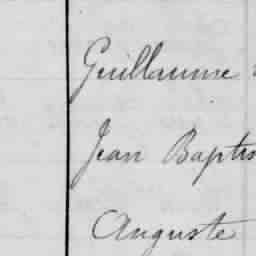 Guillaume
Jean Baptis
Auguste